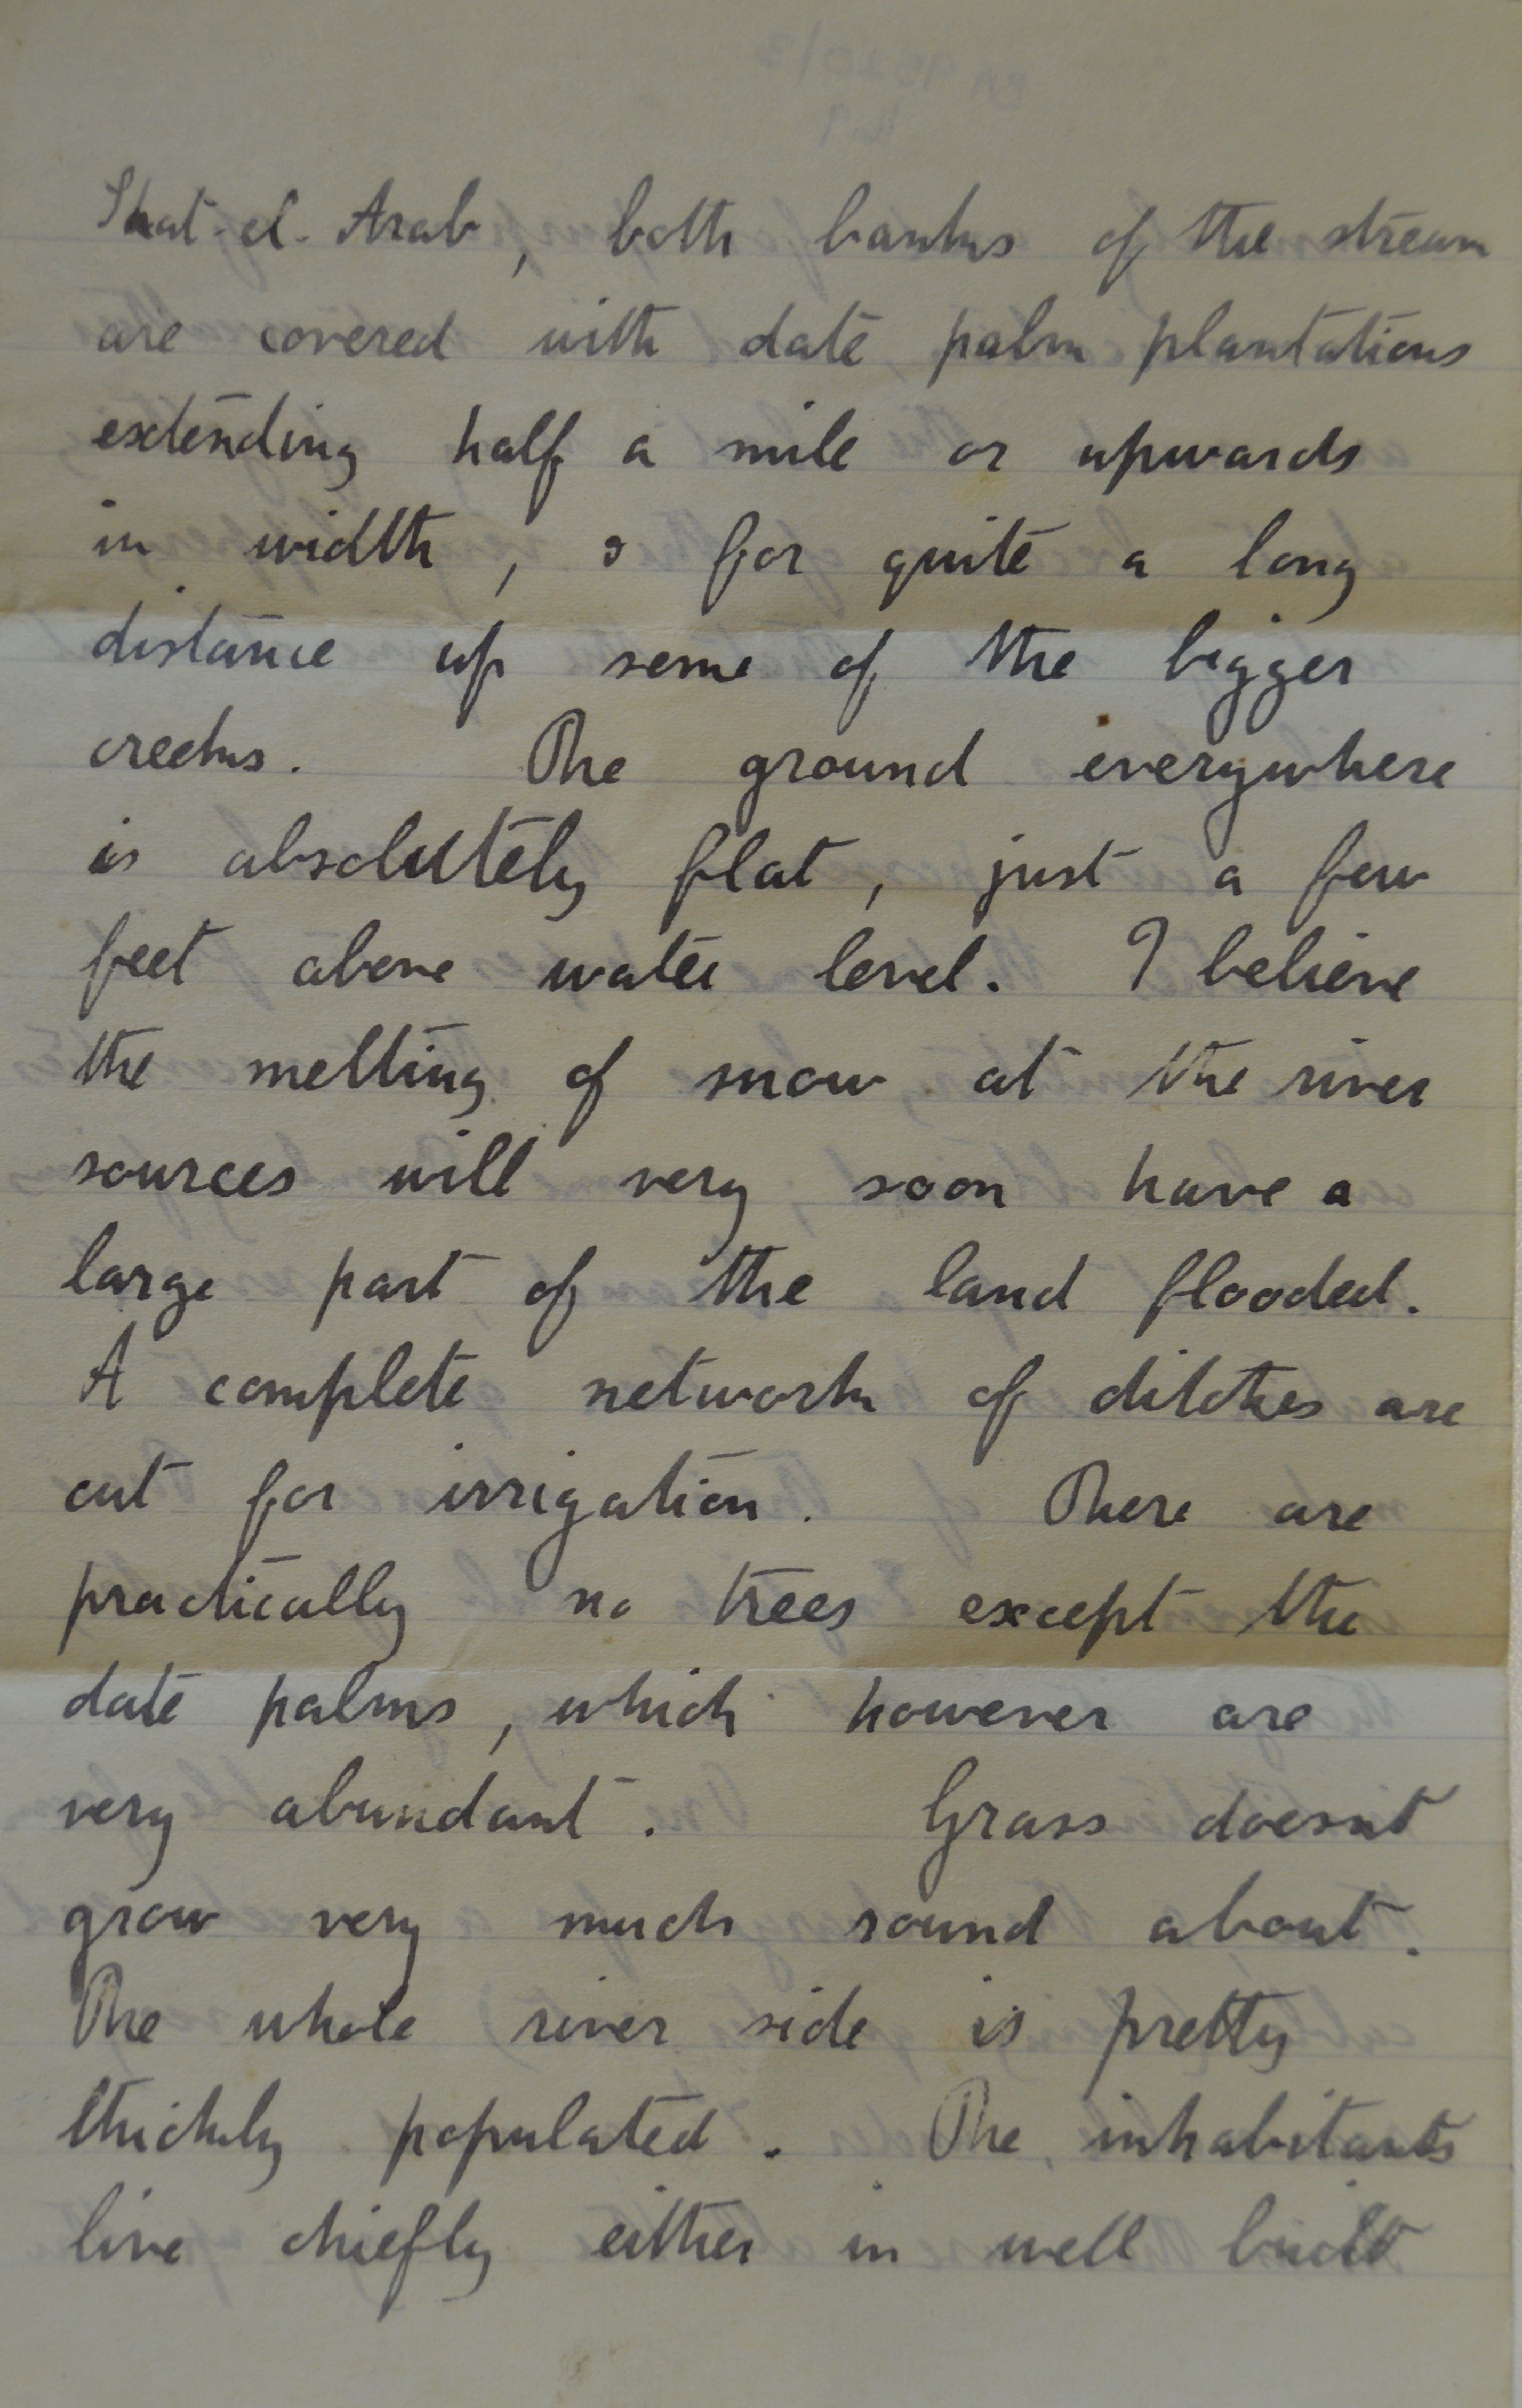 Shat-el-Arab, both banks of the stream
are covered with date palm plantations
extending half a mile or upwards
in width, & for quite a long
distance up some of the bigger
creeks. The ground everywhere
is absolutely flat, just a few
feet above water level. I believe
the melting of snow at the river
sources will very soon have a
large part of the land flooded.
A complete network of ditches are
cut for irrigation. There are
practically no trees except the
date palms, which however are
very abundant. Grass doesnt
grow very much round about.
The whole river side is pretty
thickly populated. The inhabitants
live chiefly either in well built